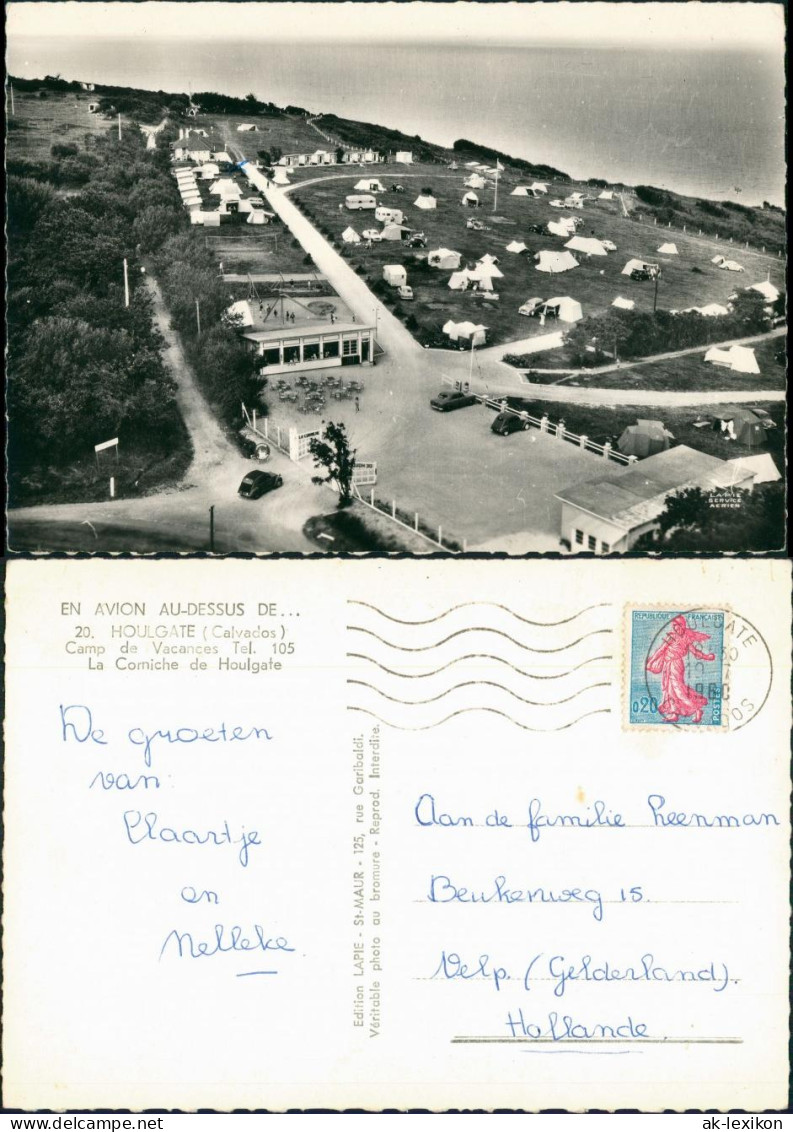 LAPIE
SERVICE
AERIEN
EN AVION AU-DESSUS DE...
20. HOULGATE (Calvados)
Camp de Vacances Tel. 105
La Corniche de Houlgate
De groeten
van:
Klaartje
en
Nelleke.
Edition LAPIE - St-MAUR - 125, rue Garibaldi.
Véritable photo au bromure - Reprod. Interdite.
REPUBLIQUE FRANÇAISE
0,20
POSTES
HOULGATE
1960
Aan de familie Leenman
Beukenweg 15.
Velp. (Gelderland)
Hollande.
ak-lexikon
ak-lexikon.com